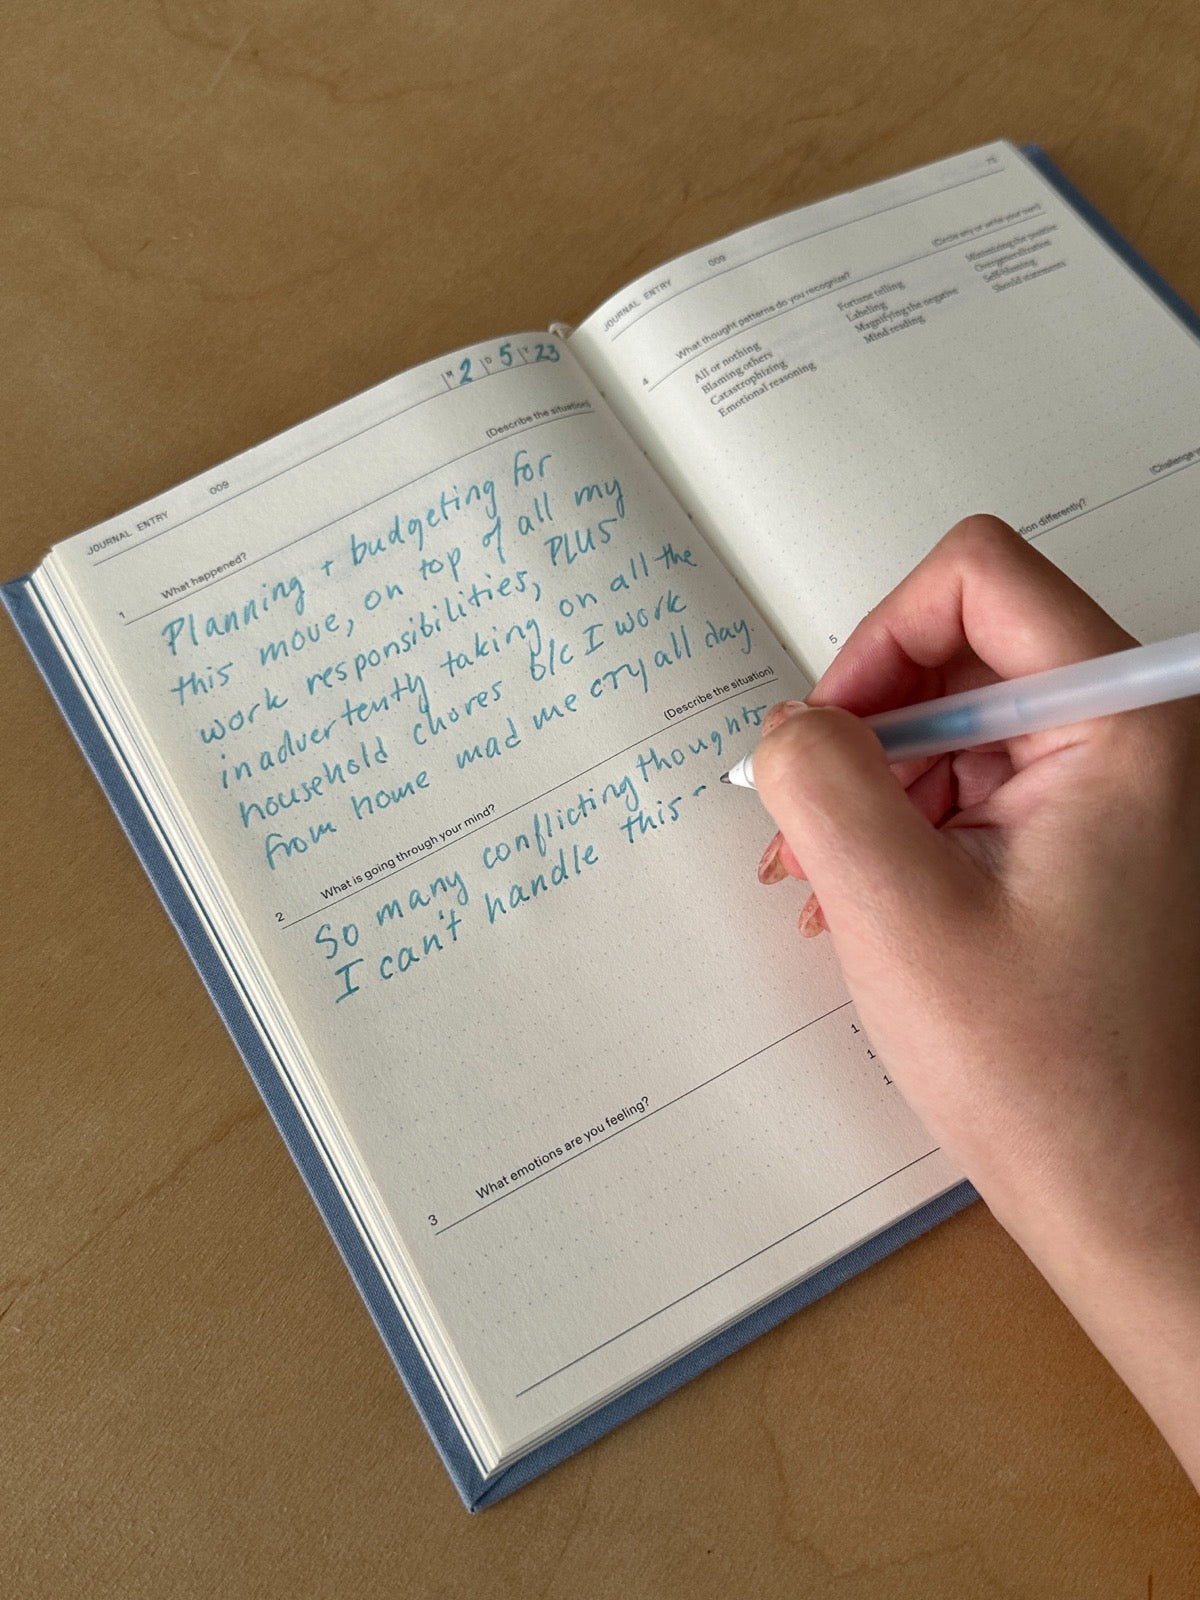 JOURNAL ENTRY 009
M 2 D 5 Y 23
1 What happened? (Describe the situation)
Planning + budgeting for
this move, on top of all my
work responsibilities, PLUS
inadvertently taking on all the
household chores b/c I work
from home mad me cry all day.
2 What is going through your mind? (Describe the situation)
So many conflicting thoughts
I can't handle this -
3 What emotions are you feeling?
1
1
1
JOURNAL ENTRY 009
4 What thought patterns do you recognize? (Circle any or write your own)
All or nothing
Blaming others
Catastrophizing
Emotional reasoning
Fortune telling
Labeling
Magnifying the negative
Mind reading
Minimizing the positive
Overgeneralization
Self-blaming
Should statements
5 differently? (Challenge